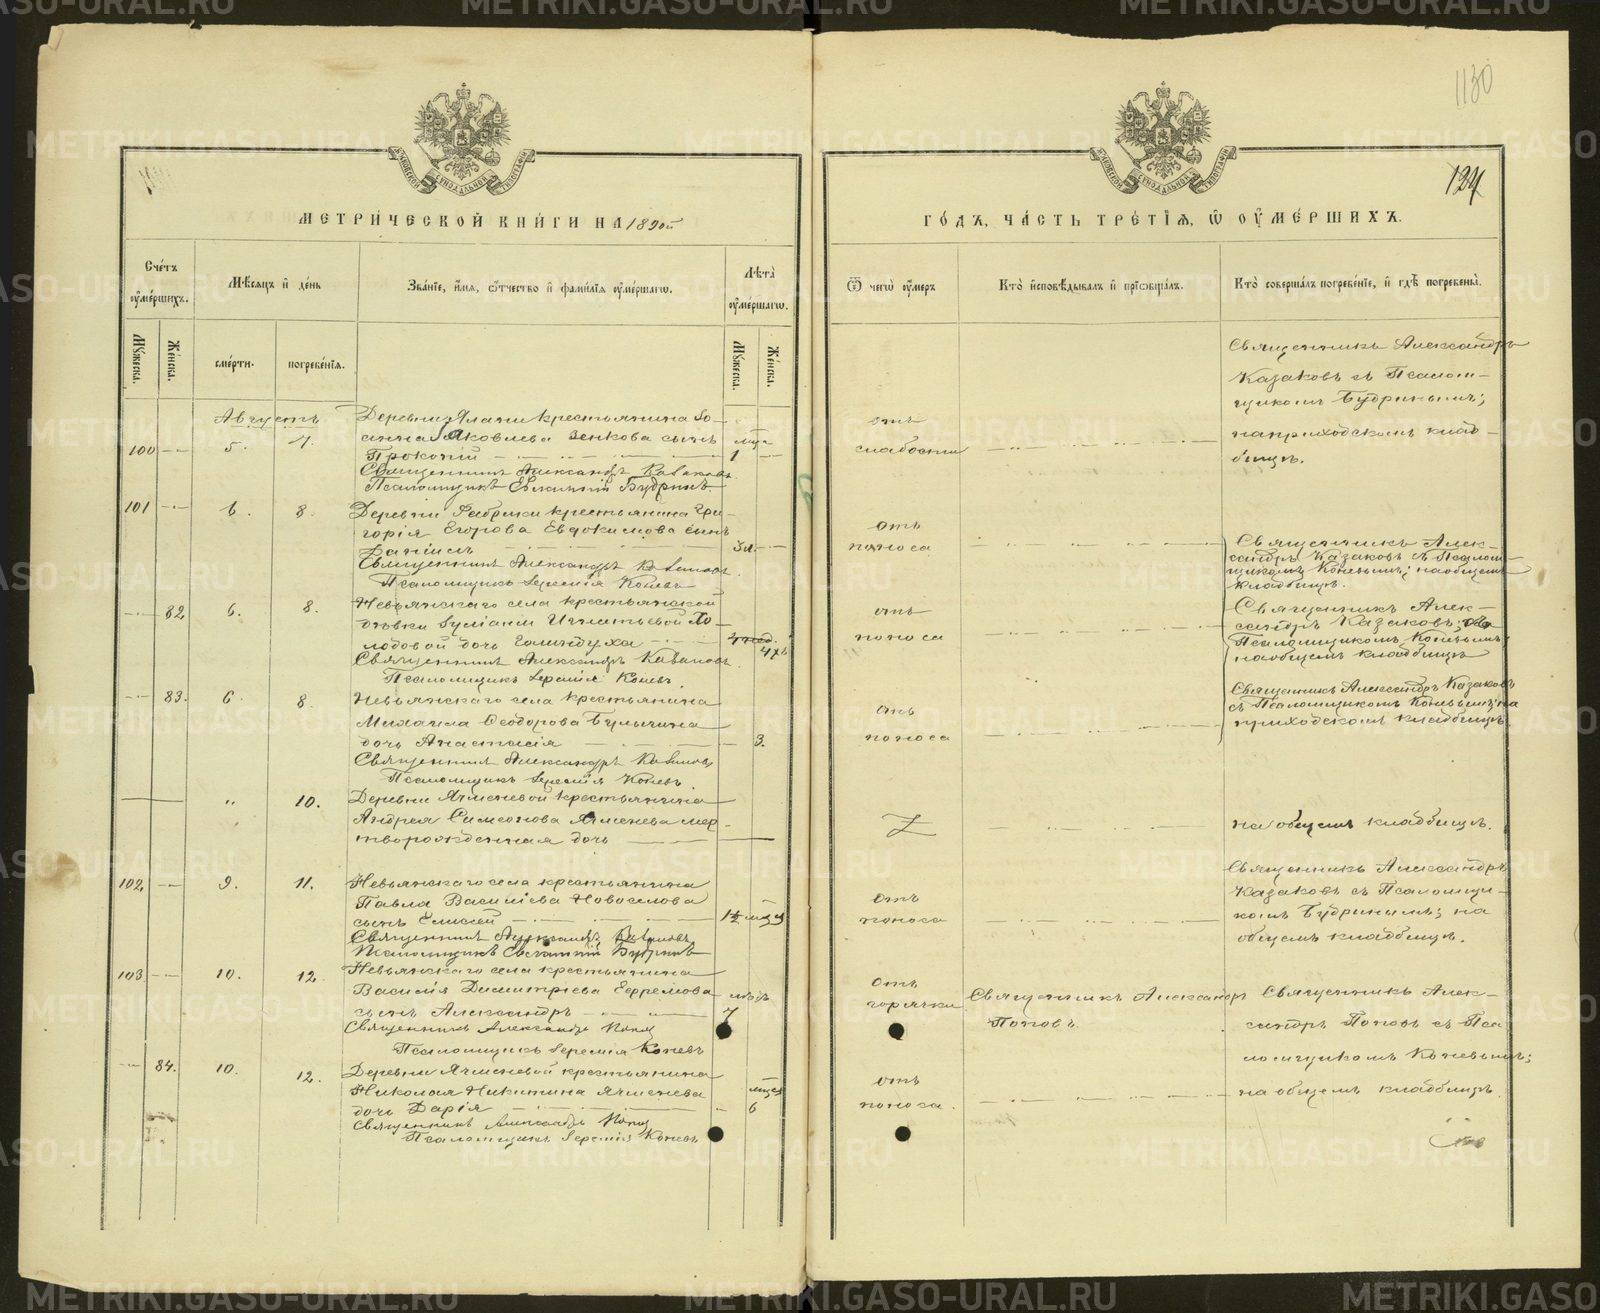 1130
124
МЕТРИ́ЧЕСКОЙ КНИ́ГИ НА 1890й
ГО́ДЪ, ЧА́СТЬ ТРЕ́ТІѦ, Ѿ ОУМЕ́РШИХЪ.
Сче́тъ оуме́ршихъ.
Мѣ́сяцъ и де́нь
Зва́ніе, и́мя, о́тчество и фами́лія оуме́ршагѡ.
Лѣта̀ оуме́ршагѡ.
Ѿ чегѡ̀ оу́меръ
Кто̀ исповѣ́дывалъ и пріѡбща́лъ.
Кто̀ соверша́лъ погребе́ніе, и гдѣ̀ погребены̀.
Му́жеска.
Же́нска.
сме́рти.
погребе́нія.
Му́жеска.
Же́нска.
Августъ
100
5.
7.
Деревни Ялани крестьянина Іо-
анна Яковлева Зенкова сынъ
Прокопій
мца
1
Священникъ Александръ Казаковъ
Псаломщикъ Евгеній Будринъ.
отъ
слабости
Священникъ Александръ
Казаковъ съ Псалом-
щикомъ Будринымъ;
на приходскомъ клад-
бищѣ.
101
6.
8.
Деревни Фабрики крестьянина Гри-
горія Егорова Евдокимова сынъ
Даніилъ
3 л.
Священникъ Александръ Казаковъ
Псаломщикъ Іеремія Коневъ
отъ
поноса
Священникъ Алек-
сандръ Казаковъ съ Псалом-
щикомъ Коневымъ; на общемъ
кладбищѣ.
82
6.
8.
Невьянскаго села крестьянской
дочь
Священникъ Александръ Казаковъ
Псаломщикъ Іеремія Коневъ
отъ
поноса
Священникъ Алек-
сандръ Казаковъ;
Псаломщикомъ Коневымъ;
на общемъ кладбищѣ
83.
6
8
Невьянскаго села крестьянина
Михаила Ѳеодорова Булыгина
дочь Анастасія
3.
Священникъ Александръ Казаковъ
Псаломщикъ Іеремія Коневъ.
отъ
поноса
Священникъ Александръ Казаковъ
съ Псаломщикомъ Коневымъ; на
приходскомъ кладбищѣ
"
10.
Деревни Ячменевой крестьянина
Андрея Симеонова Ячменева мер-
творожденная дочь
на общемъ кладбищѣ.
102
9.
11.
Невьянскаго села крестьянина
Павла Васильева Новоселова
сынъ Елисей
1½ мцъ
Священникъ Александръ Казаковъ
Псаломщикъ Евгеній Будринъ
отъ
поноса
Священникъ Александръ
Казаковъ съ Псаломщи-
комъ Будринымъ; на
общемъ кладбищѣ.
103
10.
12.
Невьянскаго села крестьянина
Василія Димитріева Ефремова
сынъ Александръ
7
Священникъ Александръ Поповъ
Псаломщикъ Іеремія Коневъ
отъ
горячки
Священникъ Александръ
Поповъ.
Священникъ Алек-
сандръ Поповъ съ Пса-
ломщикомъ Коневымъ;
на общемъ кладбищѣ.
84.
10.
12.
Деревни Ячменевой крестьянина
Николая Никитина Ячменева
дочь Дарія
мцевъ
6
Священникъ Александръ Поповъ
Псаломщикъ Іеремія Коневъ
отъ
поноса.
METRIKI.GASO-URAL.RU